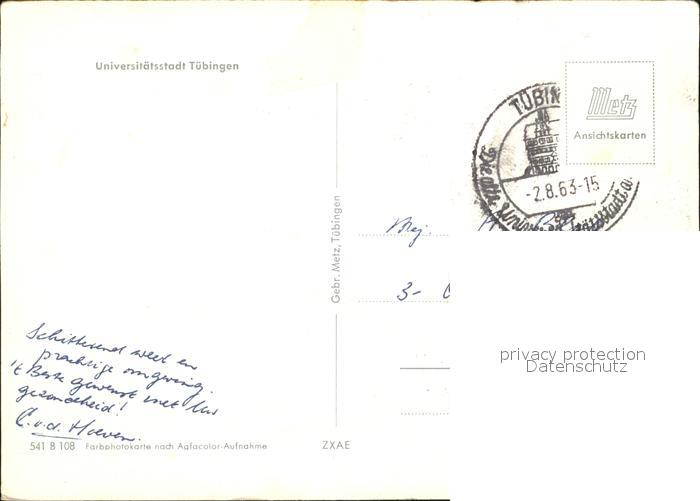 Universitätsstadt Tübingen
Metz
Ansichtskarten
TÜBIN
-2.8.63-15
Die alte Univers
stadt a.
Gebr. Metz, Tübingen
Mej.
3-
privacy protection
Datenschutz
Schitterend weer en
prachtige omgeving.
't Beste gewenst met Uw
gezondheid!
C. v. d. Hoeven.
541 B 108 Farbphotokarte nach Agfacolor-Aufnahme
ZXAE